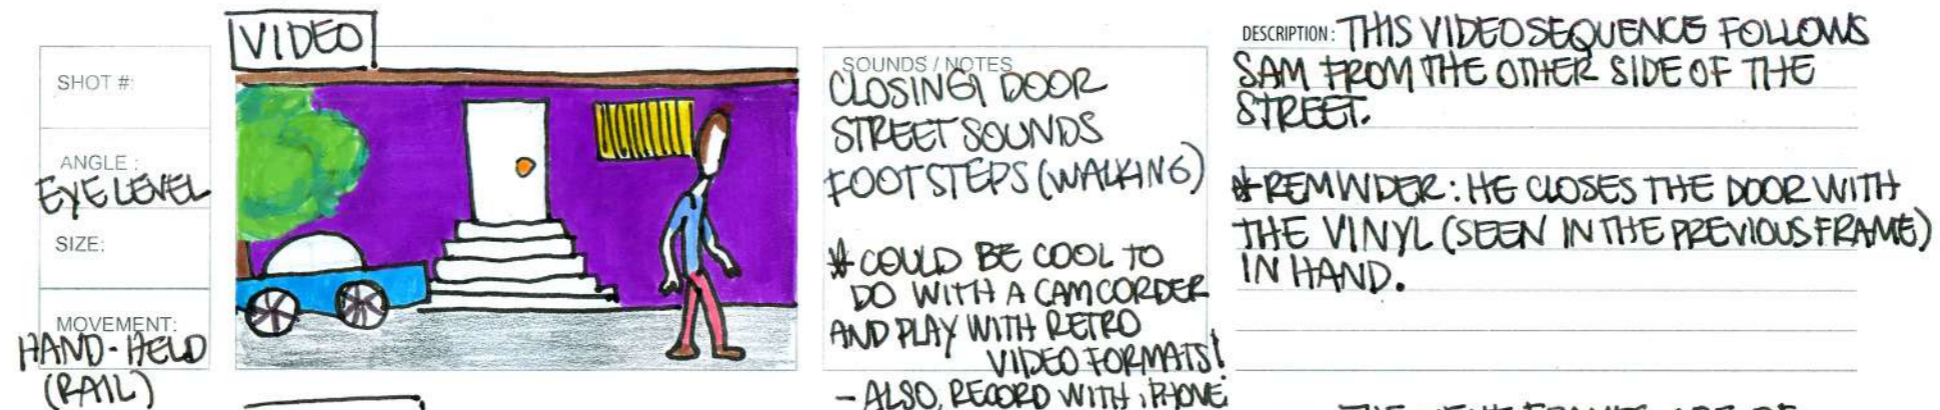 VIDEO
SHOT #:
ANGLE :
EYE LEVEL
SIZE:
MOVEMENT:
HAND-HELD
(RAIL)
SOUNDS / NOTES
CLOSING DOOR
STREET SOUNDS
FOOTSTEPS (WALKING)
* COULD BE COOL TO
DO WITH A CAMCORDER
AND PLAY WITH RETRO
VIDEO FORMATS!
- ALSO, RECORD WITH iPHONE
DESCRIPTION: THIS VIDEO SEQUENCE FOLLOWS
SAM FROM THE OTHER SIDE OF THE
STREET.
* REMINDER: HE CLOSES THE DOOR WITH
THE VINYL (SEEN IN THE PREVIOUS FRAME)
IN HAND.